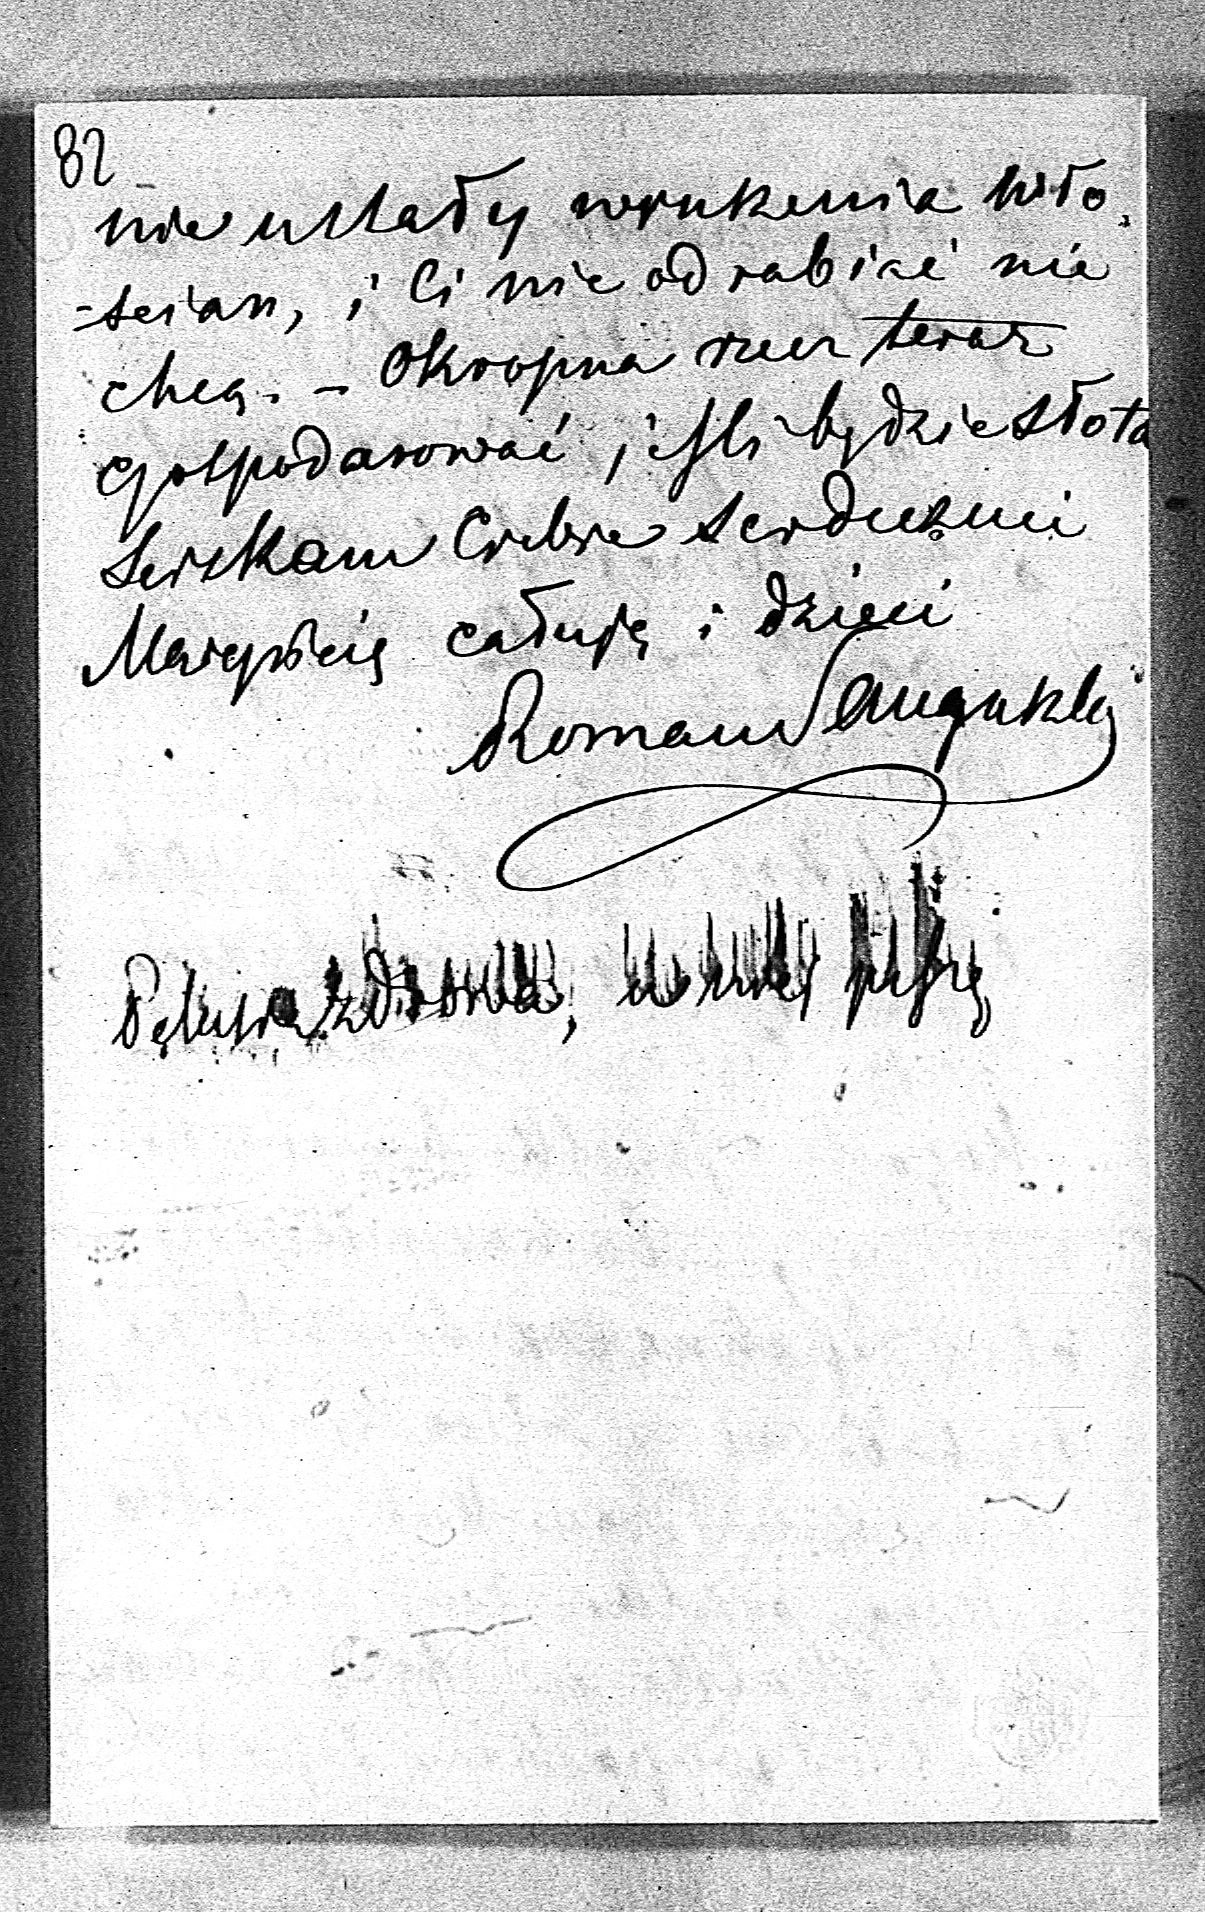 82
nie ustały wyrukenia wło-
-scian, i Ci nie odrabiać nie
chcą. – Okropna rzecz teraz
gospodarować, jeśli będzie słota
Sciskam Ciebie serdecznie
Marysieię całuję i dzieci
Roman Sanguszko
zdrowa,